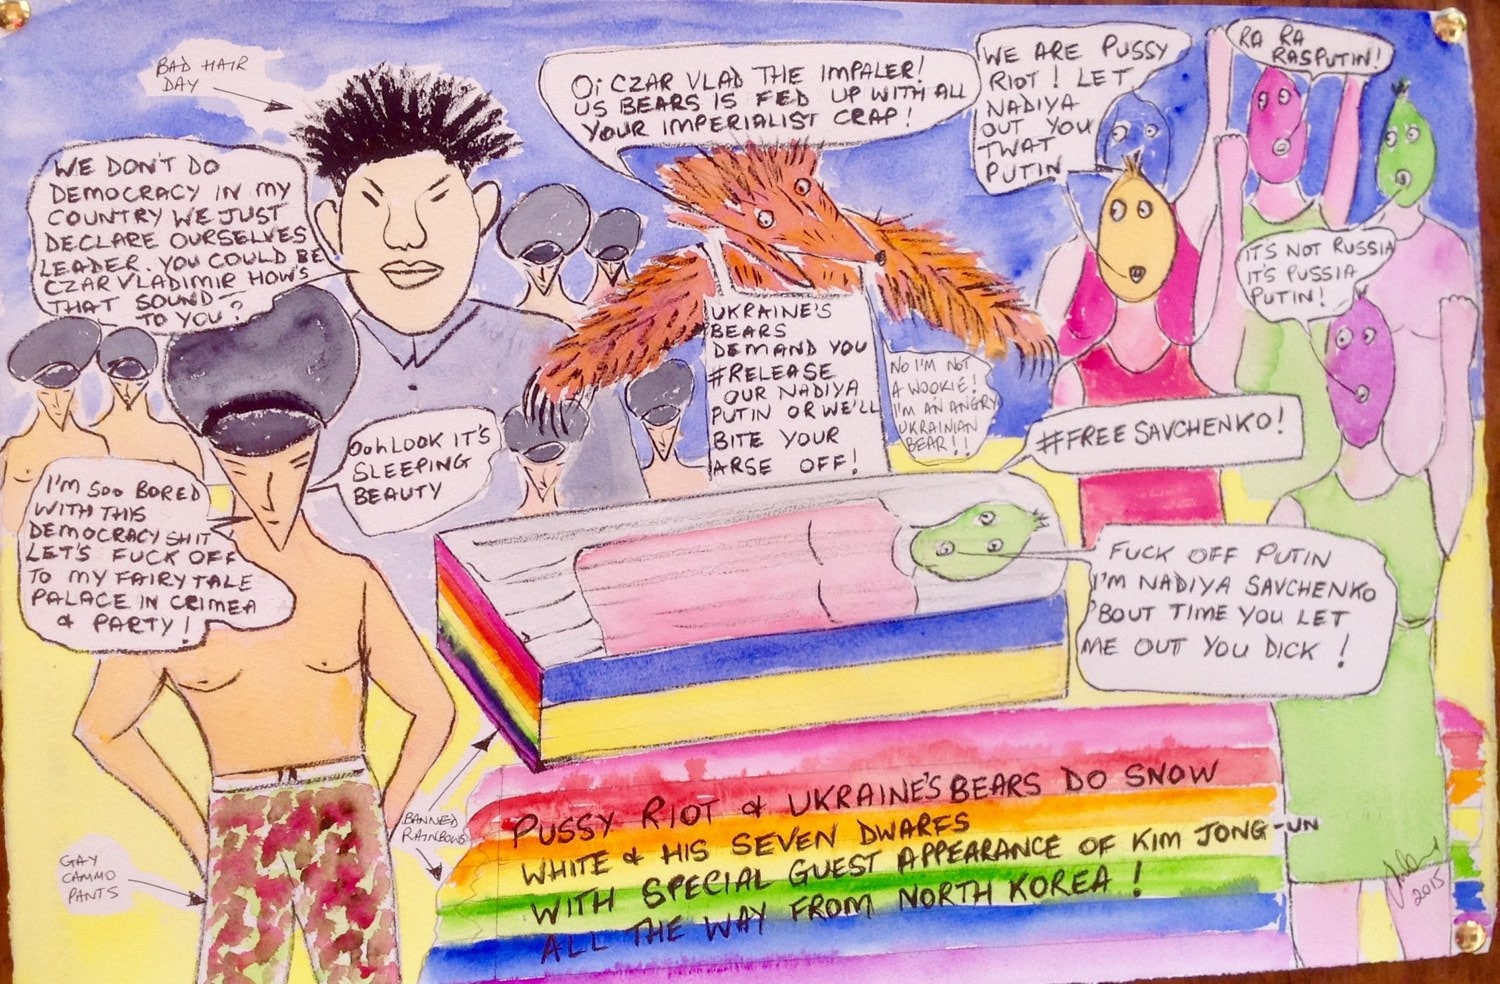 BAD HAIR
DAY
WE DON'T DO
DEMOCRACY IN MY
COUNTRY WE JUST
DECLARE OURSELVES
LEADER. YOU COULD BE
CZAR VLADIMIR HOW'S
THAT SOUND
TO YOU?
Oi CZAR VLAD THE IMPALER!
US BEARS IS FED UP WITH ALL
YOUR IMPERIALIST CRAP!
WE ARE PUSSY
RIOT! LET
NADIYA
OUT YOU
TWAT
PUTIN
RA RA
RASPUTIN!
ITS NOT RUSSIA
IT'S PUSSIA
PUTIN!
UKRAINE'S
BEARS
DEMAND YOU
#RELEASE
OUR NADIYA
PUTIN OR WE'LL
BITE YOUR
ARSE OFF!
NO I'M NOT
A WOOKIE!
I'M AN ANGRY
UKRAINIAN
BEAR!!
#FREE SAVCHENKO!
OOh LOOK IT'S
SLEEPING
BEAUTY
I'M SOO BORED
WITH THIS
DEMOCRACY SHIT
LET'S FUCK OFF
TO MY FAIRYTALE
PALACE IN CRIMEA
& PARTY!
FUCK OFF PUTIN
I'M NADIYA SAVCHENKO
'BOUT TIME YOU LET
ME OUT YOU DICK!
BANNED
RAINBOWS
GAY
CAMMO
PANTS
PUSSY RIOT & UKRAINE'S BEARS DO SNOW
WHITE & HIS SEVEN DWARFS
WITH SPECIAL GUEST APPEARANCE OF KIM JONG-UN
ALL THE WAY FROM NORTH KOREA!
2015